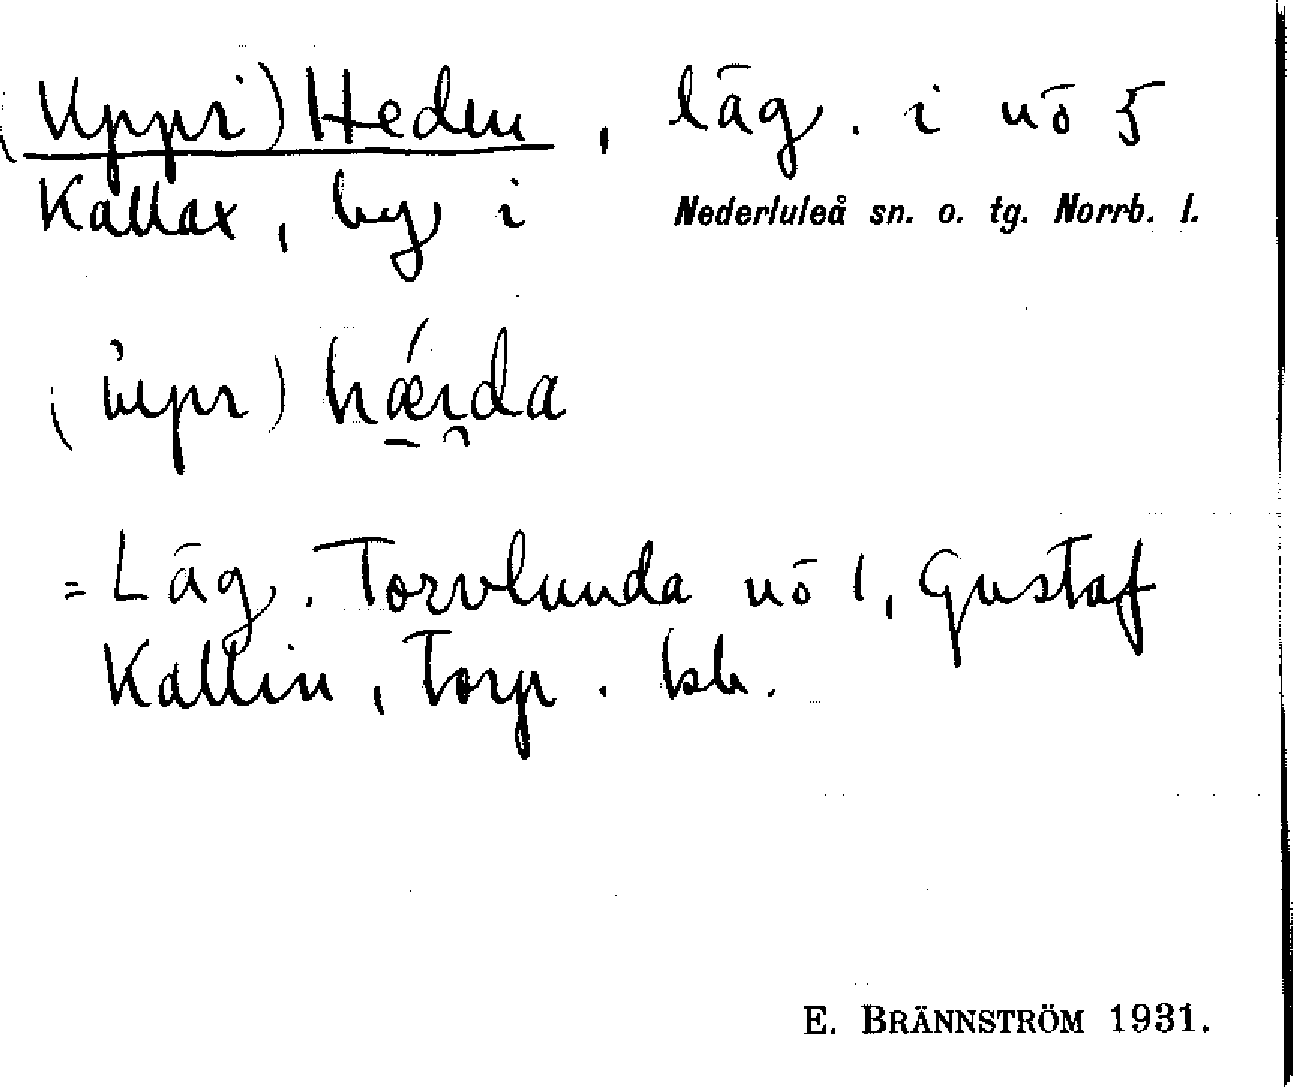 (Uppri) Heden, läg. i nö 5
Kallax, by i Nederluleå sn. o. tg. Norrb. l.
hǽɩda
= Läg. Torvlunda nö 1, Gustaf
Kallin, Torp. bb.
E. BRÄNNSTRÖM 1931.